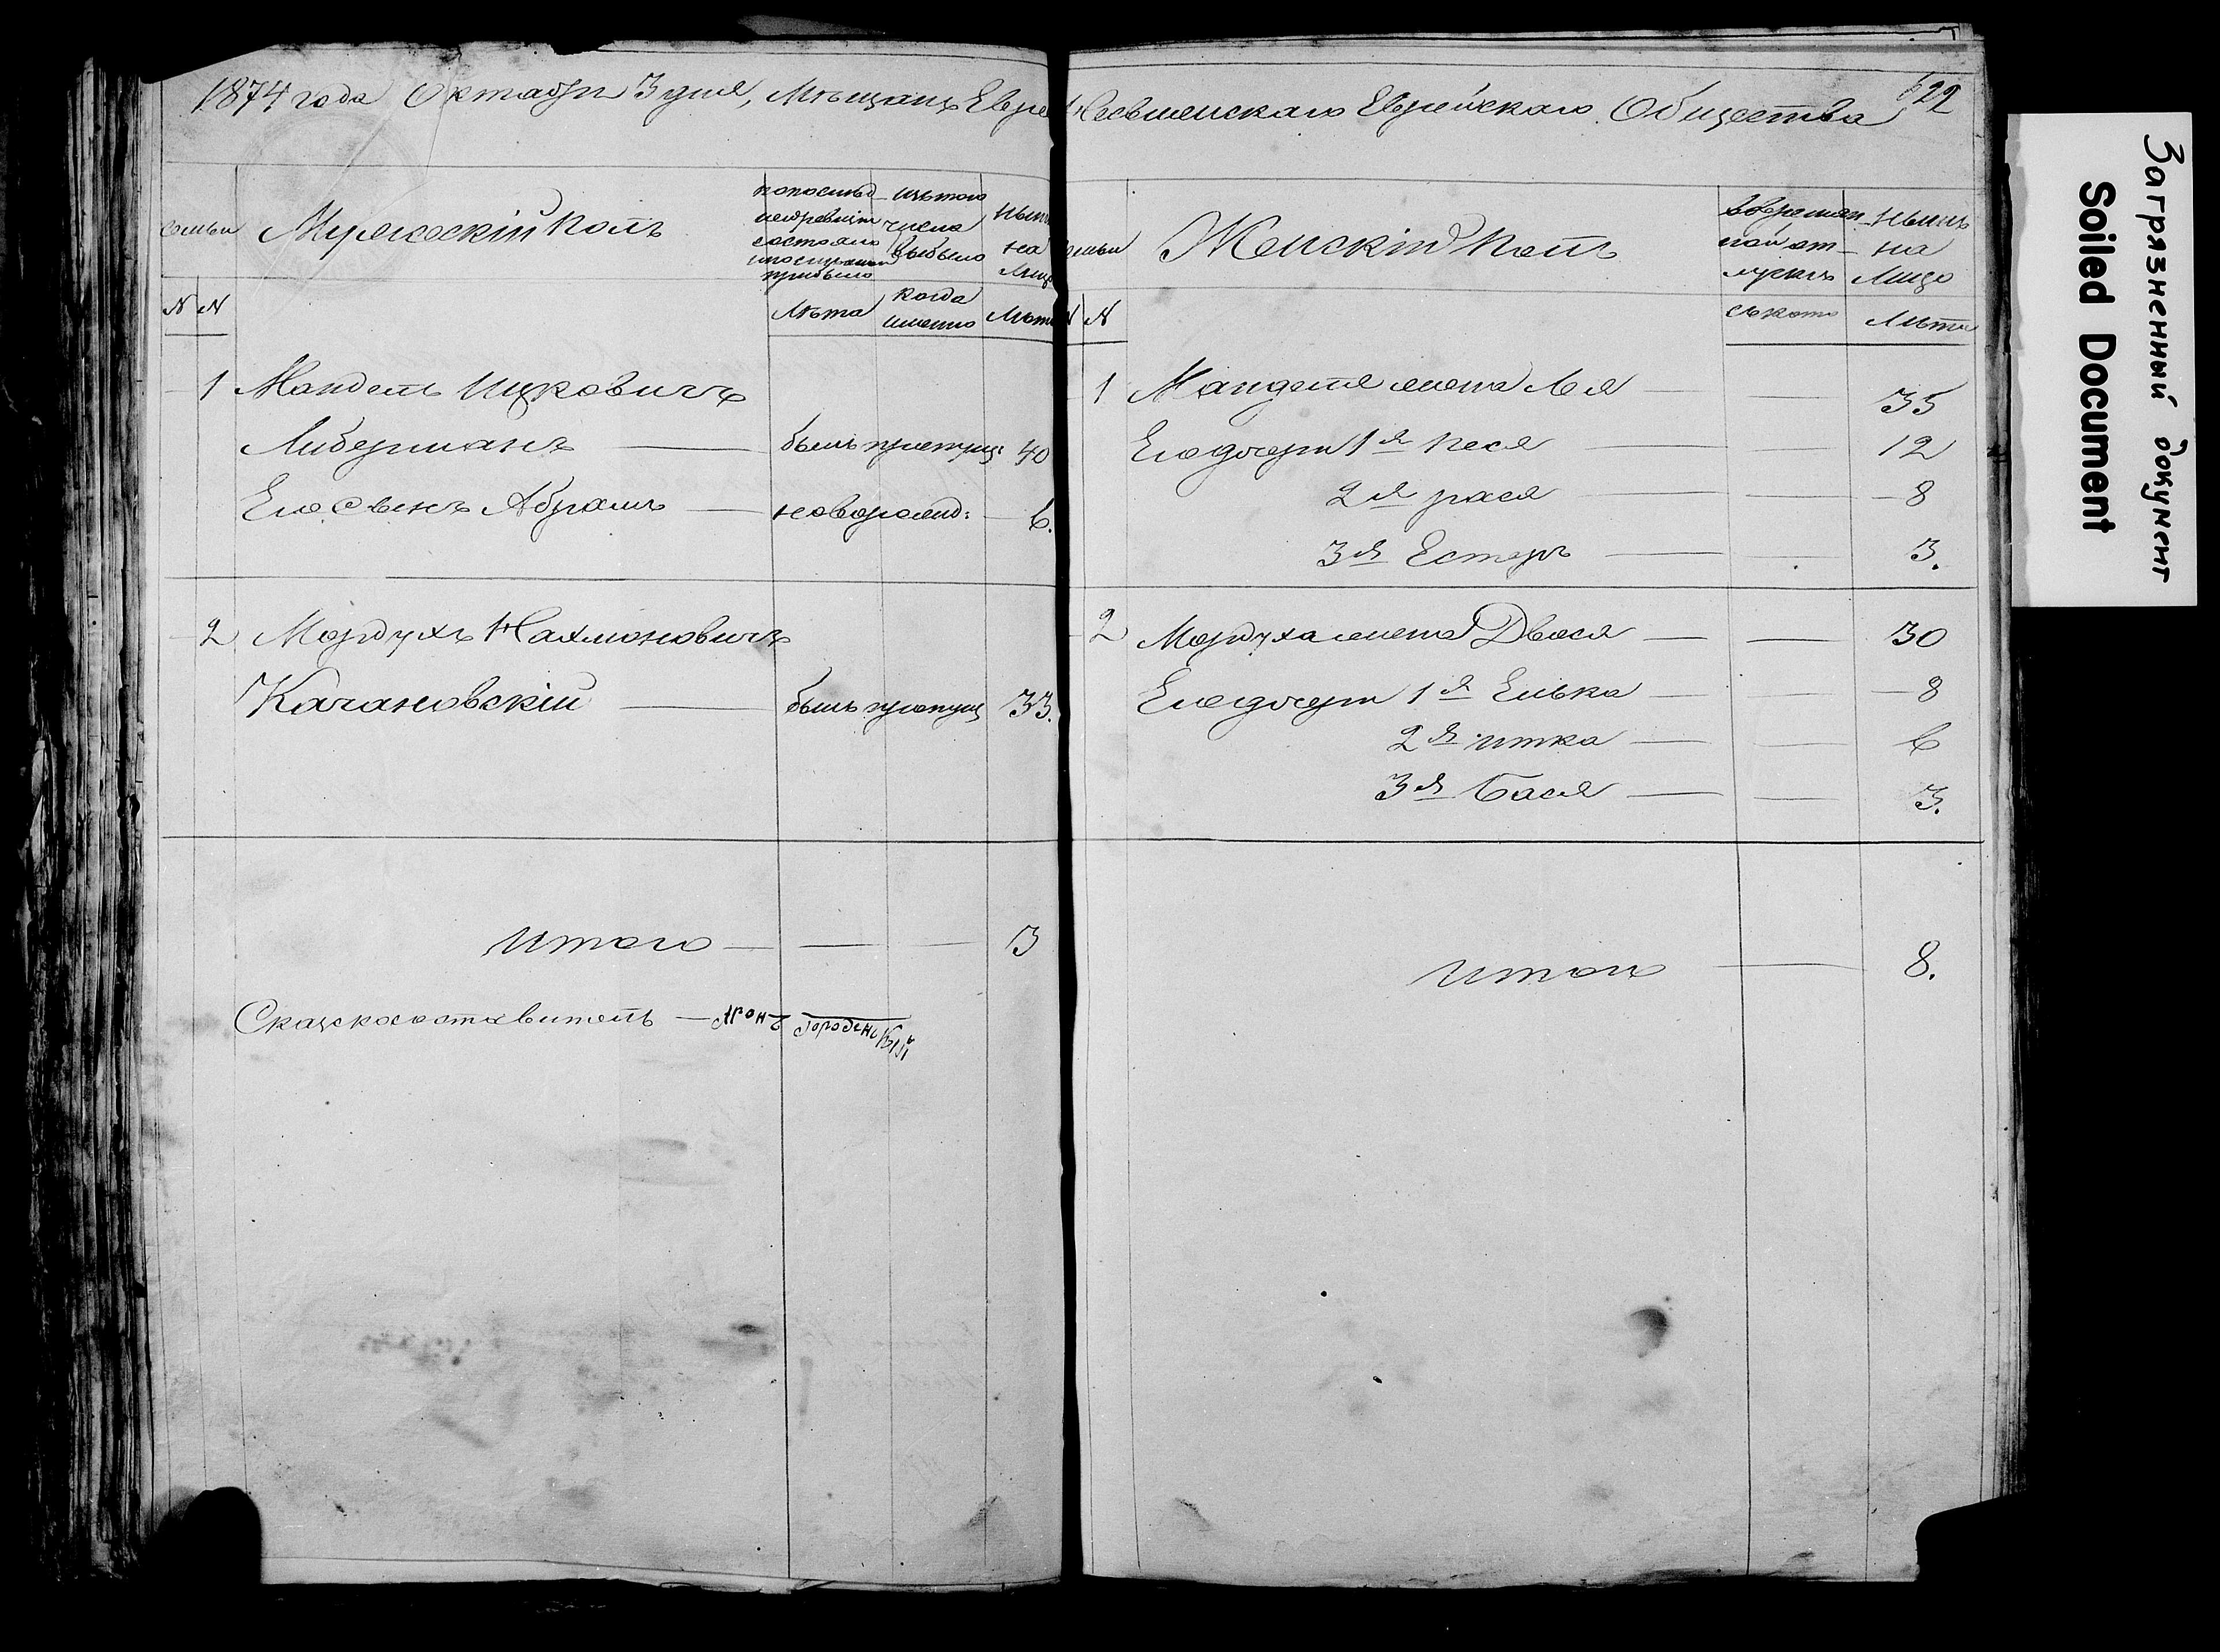 1874 года Октября 3 дня, Мѣщанъ Евре
семьи
Мужескій полъ
по послѣд
ней ревизіи
состояло
и послѣ того
прибыло
изъ того
числа
выбыло
нынѣ
на
лицо
N N
Лѣта
когда
именно
Лѣта
1 Мандель Ицковичъ
Либерманъ — былъ пропущ: 40
Его сынъ Абрамъ — новорожд: — 6.
2 Мордухъ Нахмоновичъ
Качановскій — былъ пропущ 33.
Итого — — — 3
Сказкосоставитель — Аронъ Городенскій
Несвижскаго Еврейскаго Общества
622
семьи
Женскій полъ
во времен
ной от-
лучкѣ
Нынѣ
на
Лицо
N N
съ кото
Лѣта
1 Манделя жена Лея — — 35
Его дочери 1я Песя — — 12
2я рася — — 8
3я Естеръ — 3.
2 Мордуха жена Двося — — 30
Его дочери 1я Елька — — 8
2я итка — — 6
3я Бася — — 3.
Итого — 8.
Загрязненный документ
Soiled Document